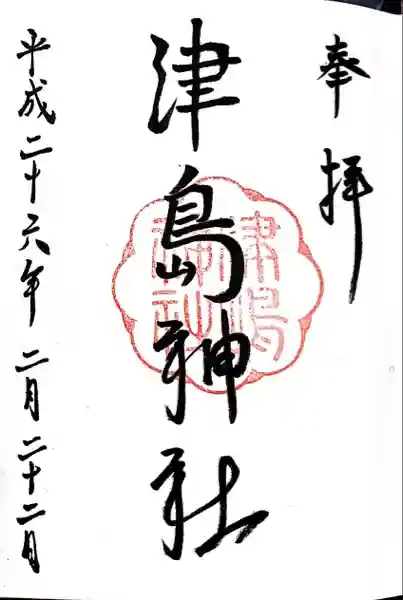 奉拝
津島神社
平成二十六年 二月二十二日
津嶋
神社